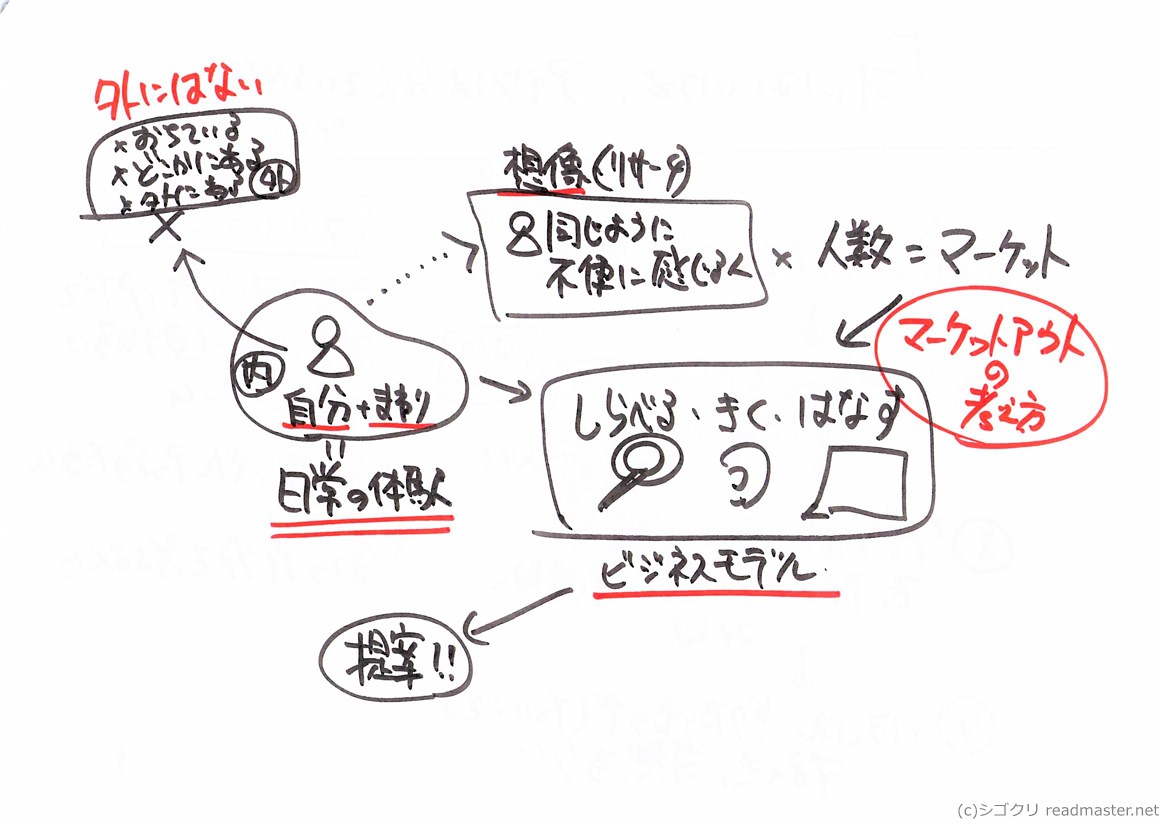 外にはない
×おちている
×どこかにある
×外にある
外
想像(リサーチ)
同じように
不便に感じる人
×人数=マーケット
マーケットアウト
の
考え方
内
自分+まわり
=
日常の体験
しらべる・きく・はなす
ビジネスモデル
提案!!
(c)シゴクリ readmaster.net